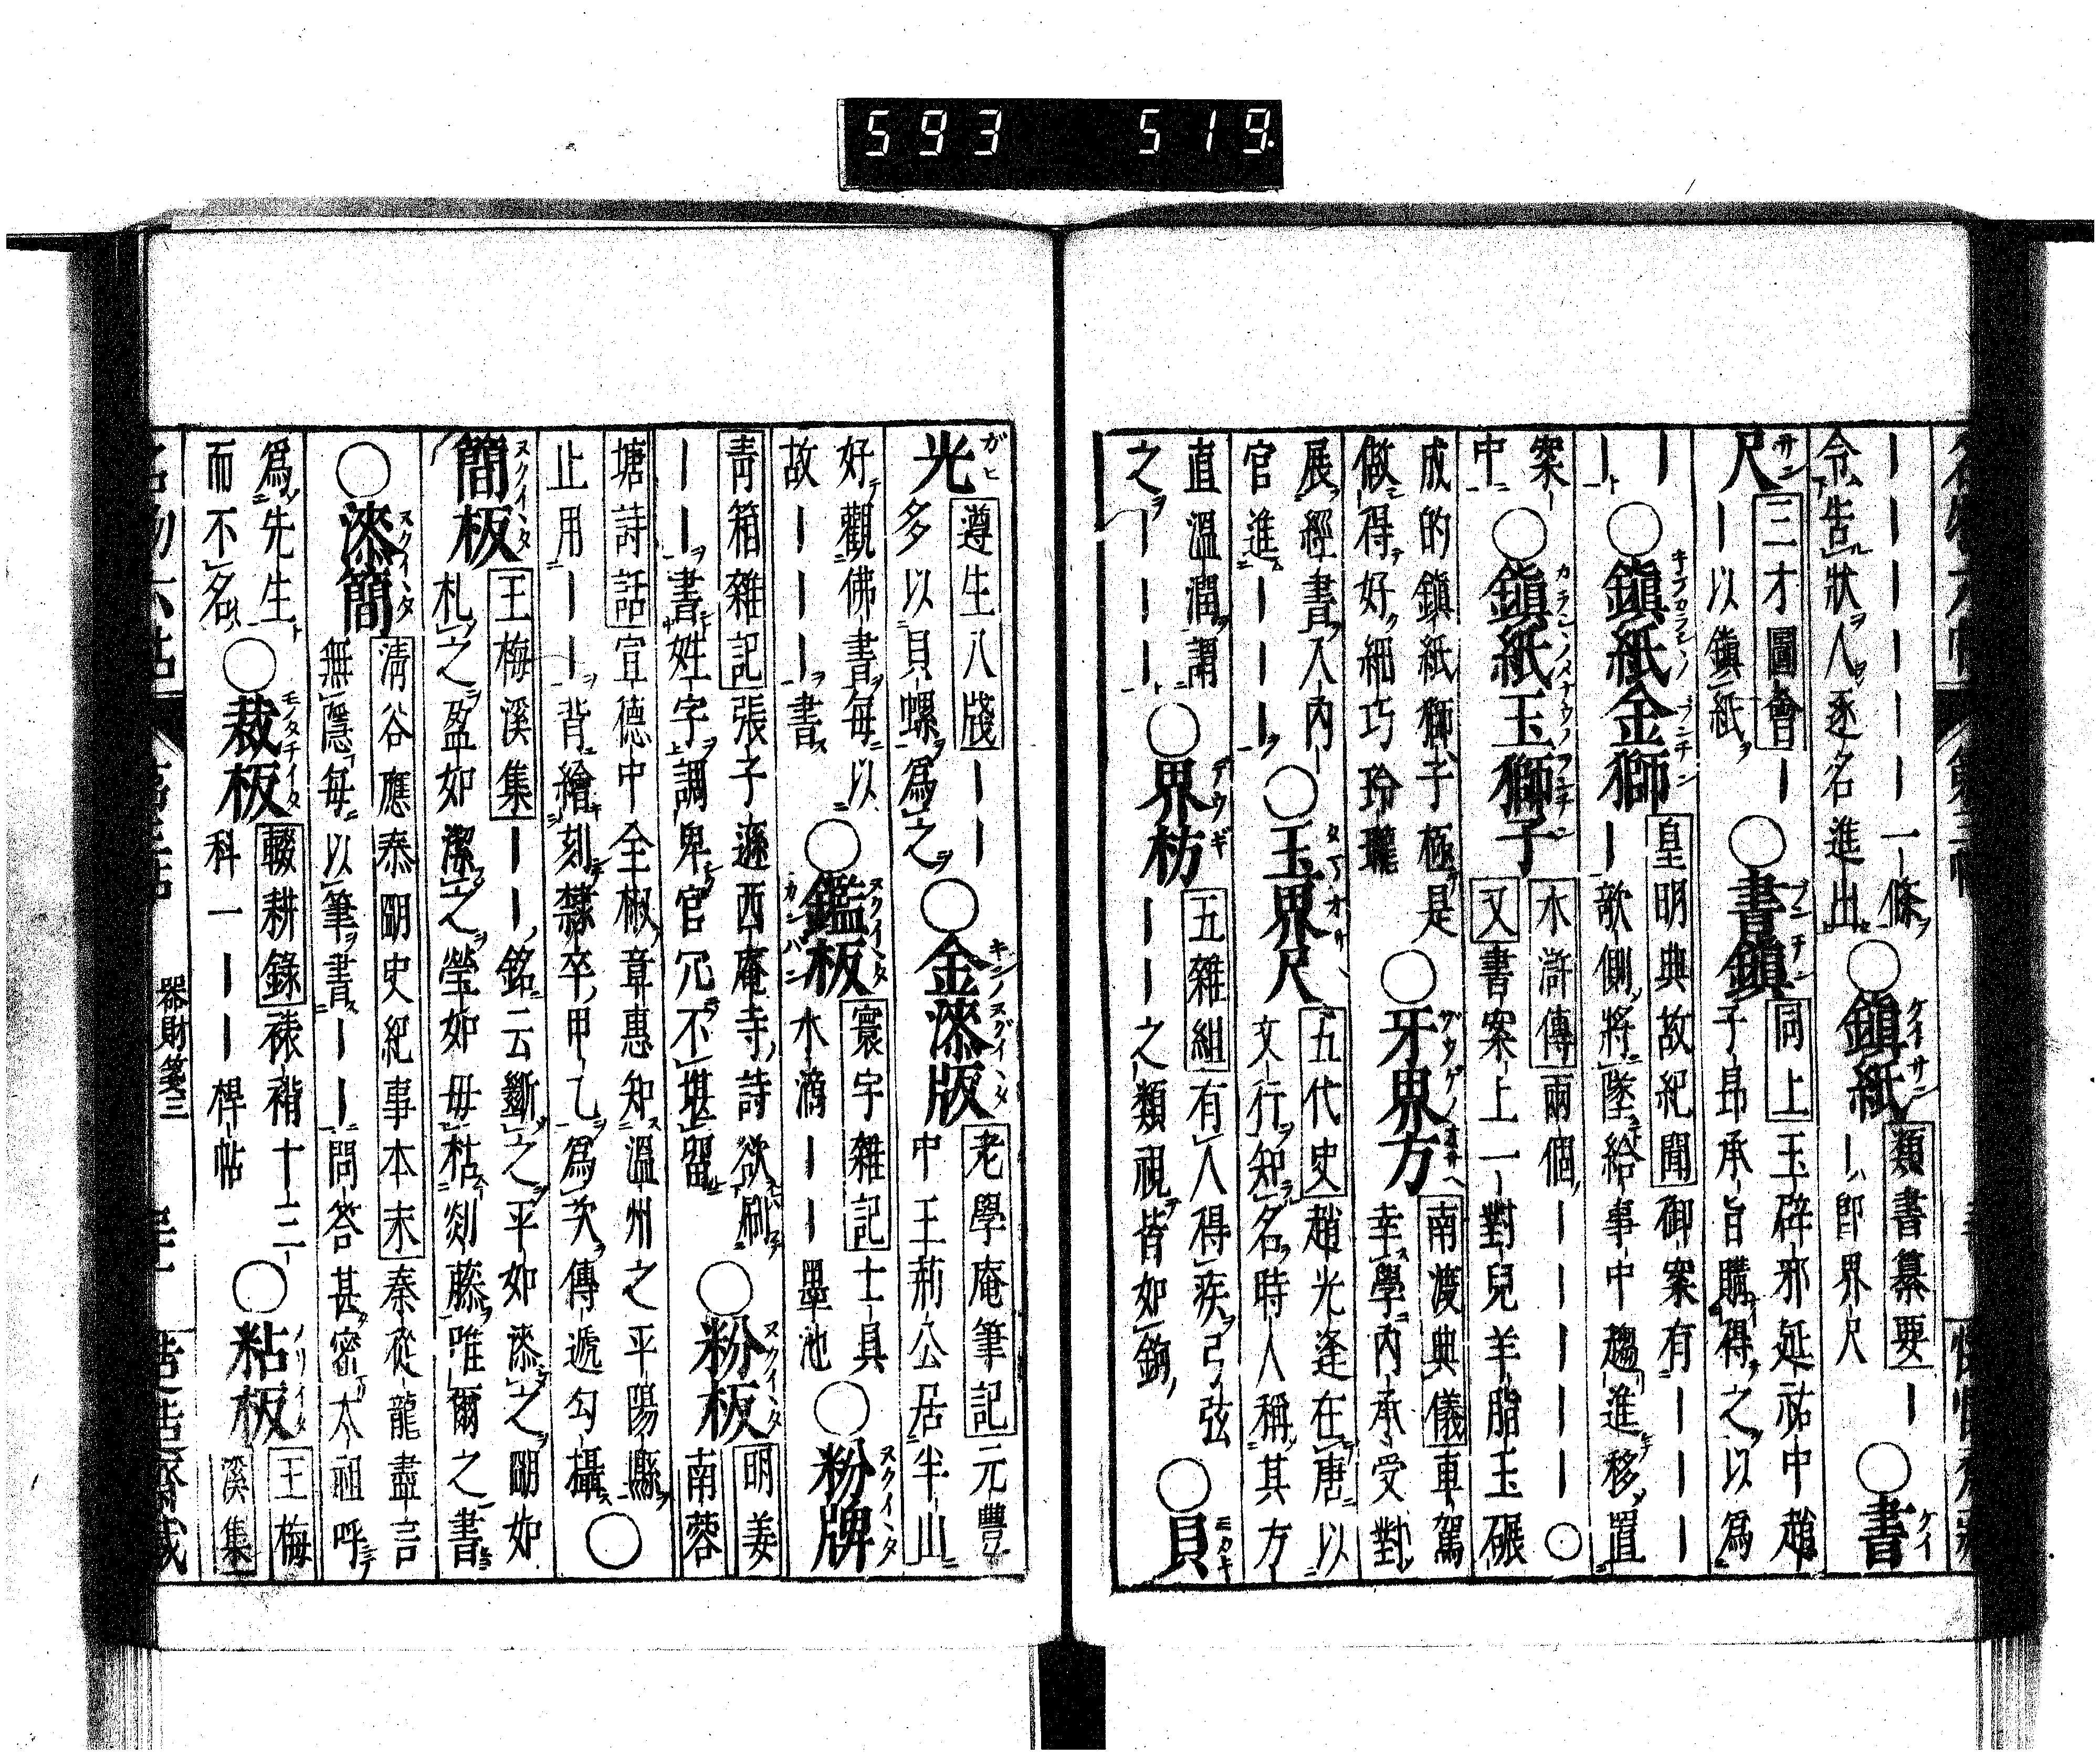 593 519
｜｜｜｜｜｜一條令告狀人逐名進出○鎮紙 類書纂要｜｜即界尺○書
尺 三才圖會｜｜以鎮紙○書鎮 同上 玉辟邪延祐中趙子昂承旨購得之以爲
｜｜○鎮紙金獅 皇明典故紀聞 御案有｜｜｜｜欹側將墜給事中趨進移置
案中○鎮紙玉獅子 水滸傳 兩個｜｜｜｜｜○又 書案上一對兒羊脂玉碾
成的鎮紙獅子極是做得好細巧玲瓏○牙界方 南渡典儀 車駕幸學內承受對
展經書入內官進｜｜｜○玉界尺 五代史 趙光逢在唐以文行知名時人稱其方
直溫潤謂之｜｜｜○界枋 五雜組 有人得疾弓弦｜｜之類視皆如鉤○貝
光 遵生八牋｜｜多以貝螺爲之○金漆版 老學庵筆記 元豐中王荊公居半山
好觀佛書每以故｜｜書○鑑板 寰宇雜記 士具水滴｜｜墨池○粉牌
青箱雜記 張子遜西庵寺詩欲刷｜｜書姓字調卑官冗不堪留○粉板 明姜南蓉
塘詩話 宣德中全椒章惠知溫州之平陽縣止用｜｜背繪刻隸卒甲乙爲次傳遞勾攝○
簡板 王梅溪集｜｜銘云斵之平如漆之朙如札之盈如潔之瑩如毋枯剡藤唯爾之書
○漆簡 淸谷應泰朙史紀事本末 秦從龍盡言無隱每以筆書｜｜問答甚密太祖呼
爲先生而不名○裁板 輟耕錄 裱褙十三科一｜｜｜椑帖○粘板 王梅溪集
器財箋三